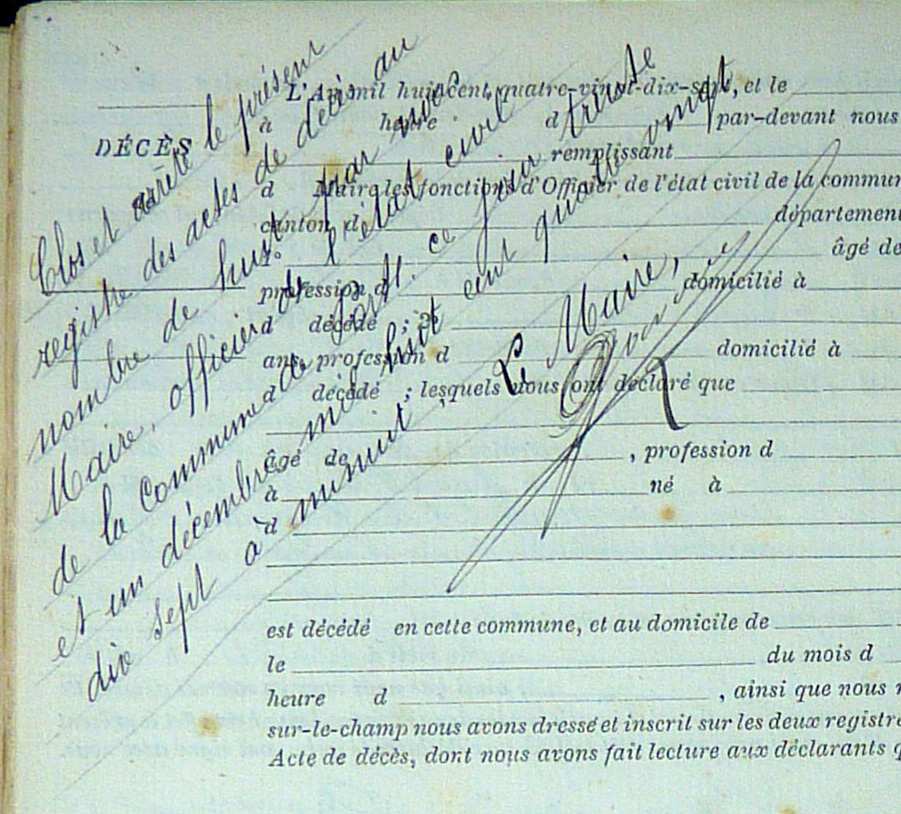 L'An mil huit cent quatre-vingt-dix-sept, et le
à heure d par-devant nous
DÉCÈS
remplissant
d Maire les fonctions d'Officier de l'état civil de la commun
canton d département
1° âgé de
profession d domicilié à
d décédé ; 2°
ans, profession d domicilié à
d décédé ; lesquels nous ont déclaré que
âgé de , profession d
à né à
d
est décédé en cette commune, et au domicile de
le du mois d
heure d , ainsi que nous
sur-le-champ nous avons dressé et inscrit sur les deux registre
Acte de décès, dont nous avons fait lecture aux déclarants
Clos et arrêté le présent
registre des actes de décès au
nombre de huit par nous
Maire, officier de l'état civil
de la commune de ce jour trente
et un décembre mil huit cent quatre vingt
dix sept à minuit, Le Maire,